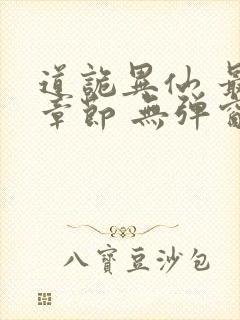 道詭異仙 最
章節 無彈窗
八寶豆沙包